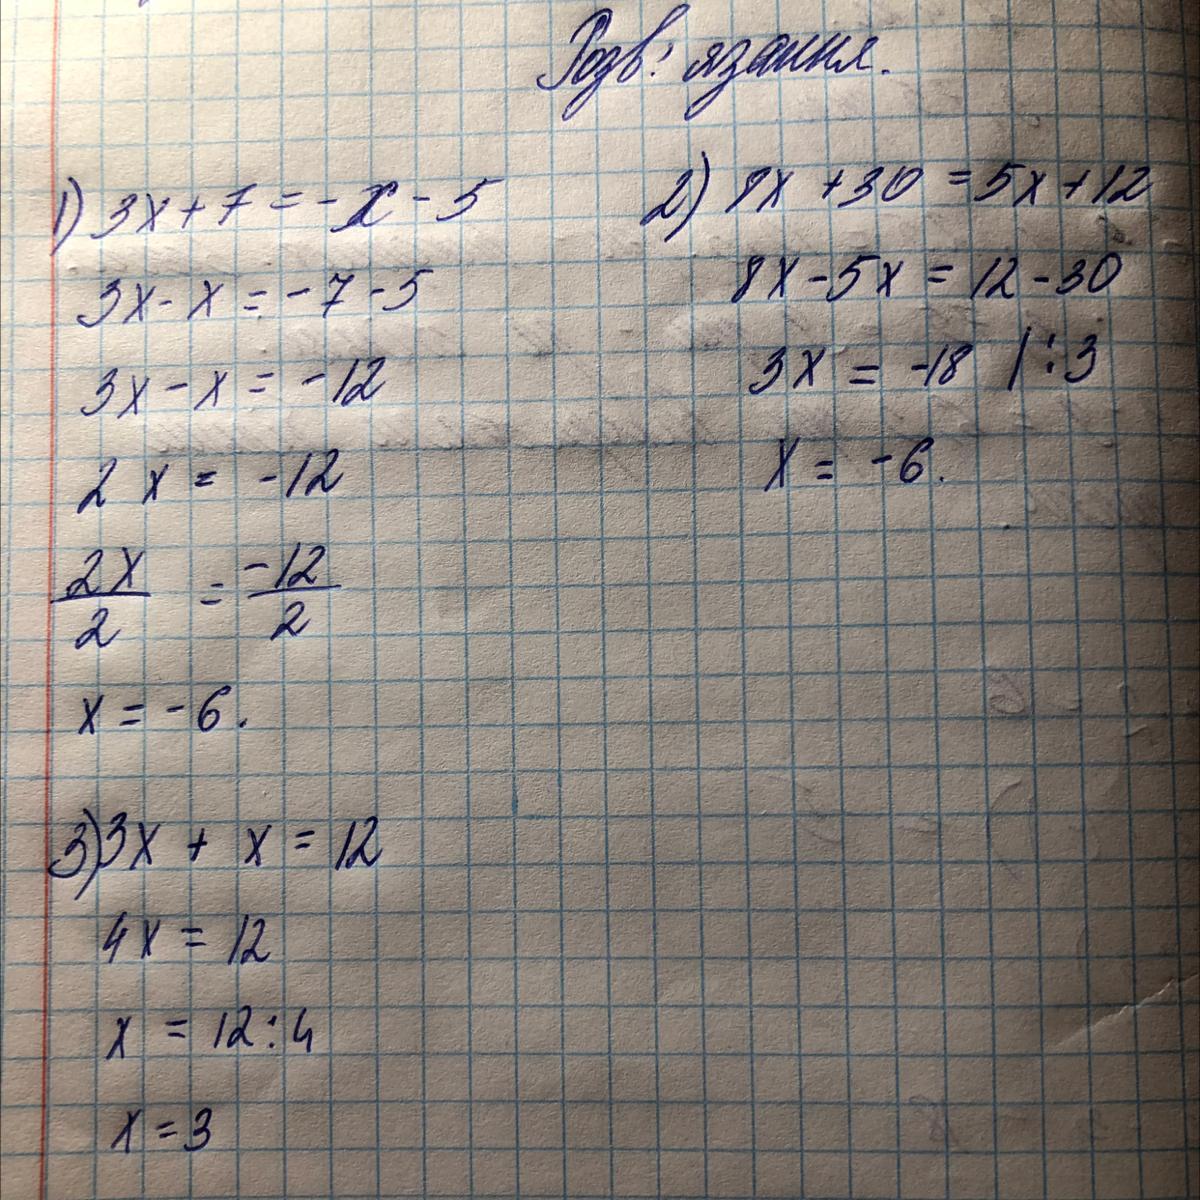 Розв'язання.
1) 3x + 7 = -x - 5
3x - x = -7 - 5
3x - x = -12
2x = -12
2x/2 = -12/2
x = -6.
2) 8x + 30 = 5x + 12
8x - 5x = 12 - 30
3x = -18 | : 3
x = -6.
3) 3x + x = 12
4x = 12
x = 12 : 4
x = 3